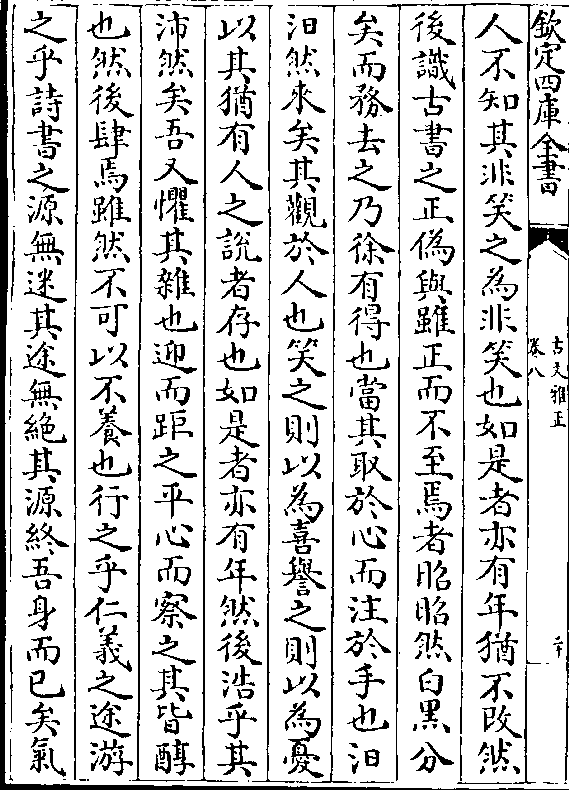 欽定四庫全書
古文雅正
卷八
二十
人不知其非笑之為非笑也如是者亦有年猶不改然
後識古書之正偽與雖正而不至焉者昭昭然白黑分
矣而務去之乃徐有得也當其取於心而注於手也汨
汨然來矣其觀於人也笑之則以為喜譽之則以為憂
以其猶有人之說者存也如是者亦有年然後浩乎其
沛然矣吾又懼其雜也迎而距之平心而察之其皆醇
也然後肆焉雖然不可以不養也行之乎仁義之途游
之乎詩書之源無迷其途無絕其源終吾身而已矣氣